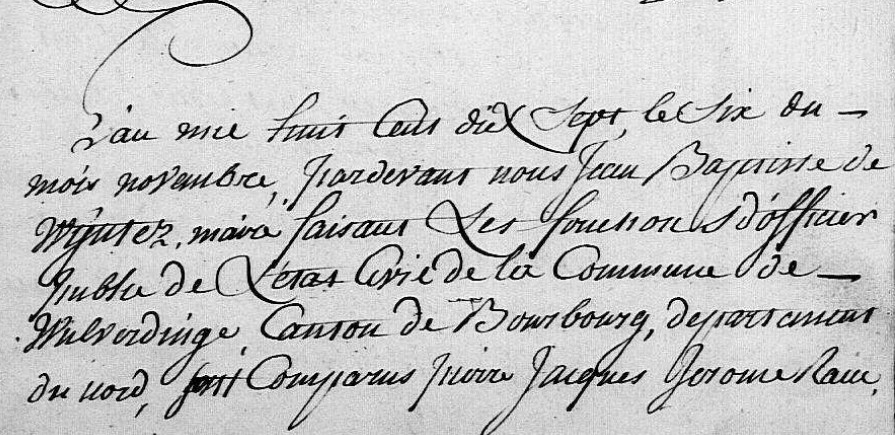 L'an mil huit Cent dix Sept, le Six du
mois novembre, pardevant nous Jean Baptiste de
Wyntez, maire faisant Les fonction d'officier
public de L'état Civil de la Commune de
Wulverdinge, Canton de Bourbourg, departement
du nord, est Comparus pierre Jacques Jerome